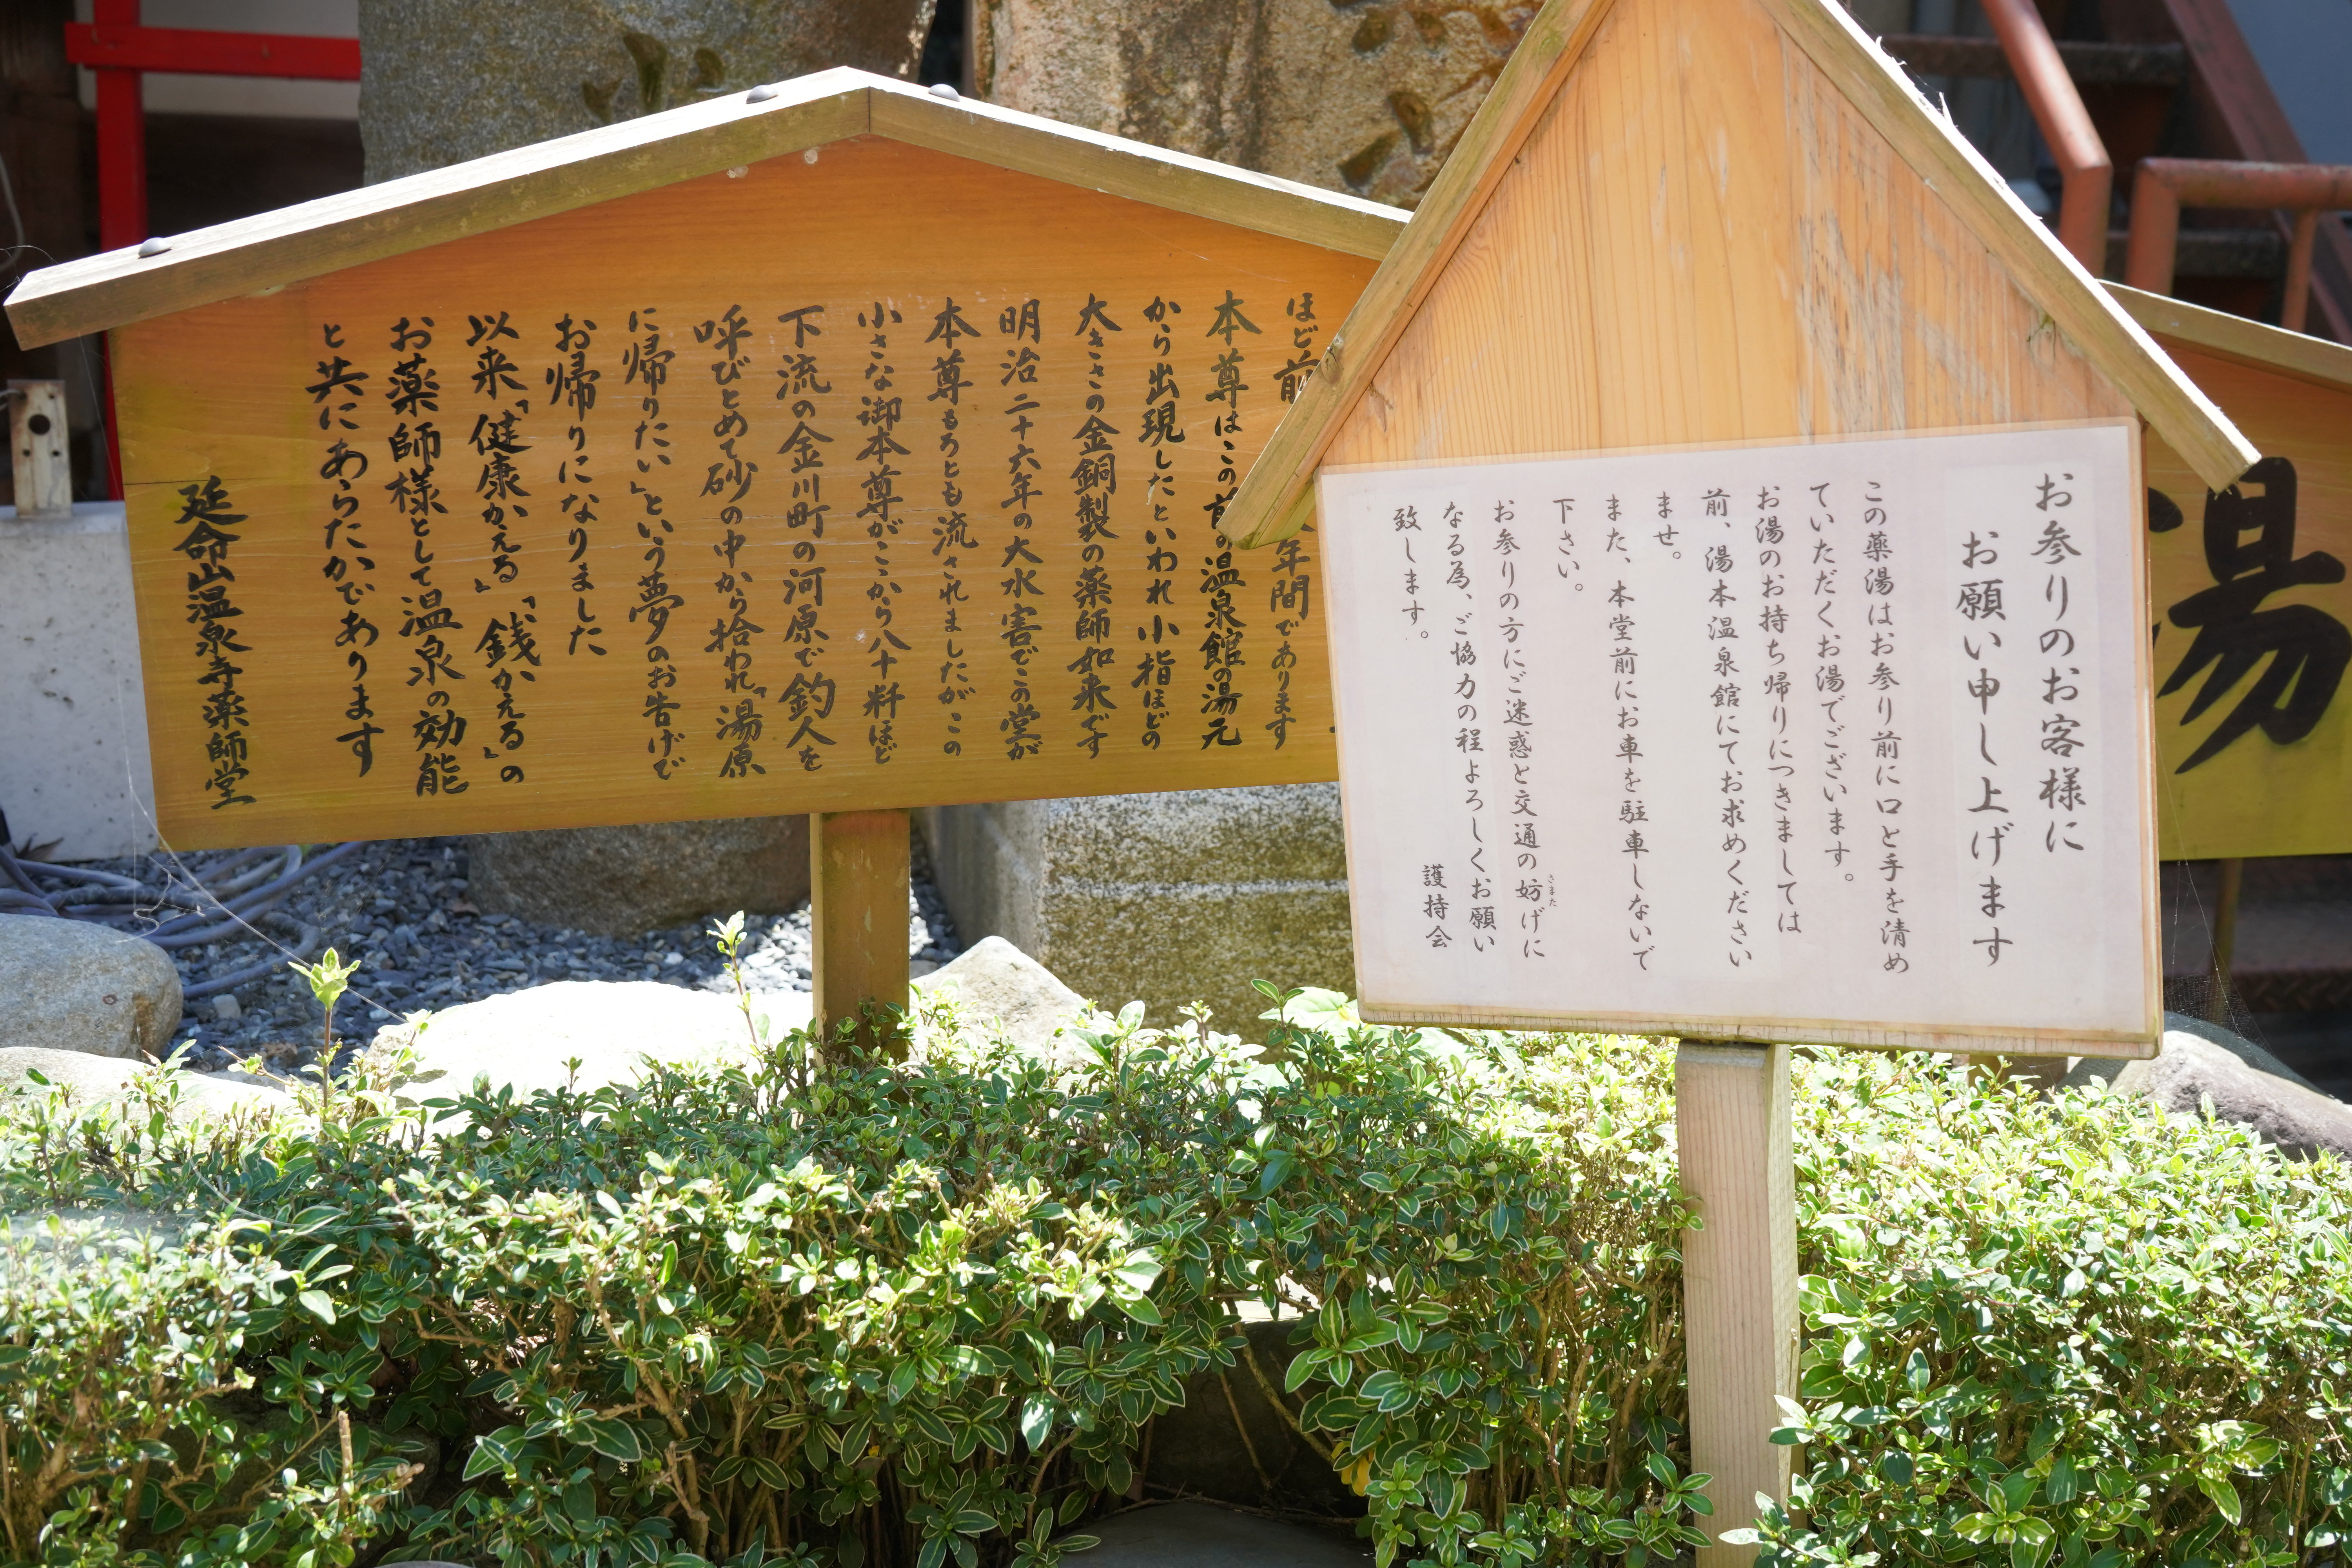 お参りのお客様に
お願い申し上げます
この薬湯はお参り前に口と手を清め
ていただくお湯でございます。
お湯のお持ち帰りにつきましては
前、湯本温泉館にてお求めください
ませ。
また、本堂前にお車を駐車しないで
下さい。
お参りの方にご迷惑と交通の妨げに
さまた
なる為、ご協力の程よろしくお願い
致します。
護持会
湯
ほど前
年間であります
本尊はこの前の温泉館の湯元
から出現したといわれ小指ほどの
大きさの金銅製の薬師如来です
明治二十六年の大水害でこの堂が
本尊もろとも流されましたがこの
小さな御本尊がこゝから八十粁ほど
下流の金川町の河原で釣人を
呼びとめて砂の中から拾われ「湯原
に帰りたい」という夢のお告げで
お帰りになりました
以来「健康かえる」「銭かえる」の
お薬師様として温泉の効能
と共にあらたかであります
延命山温泉寺薬師堂